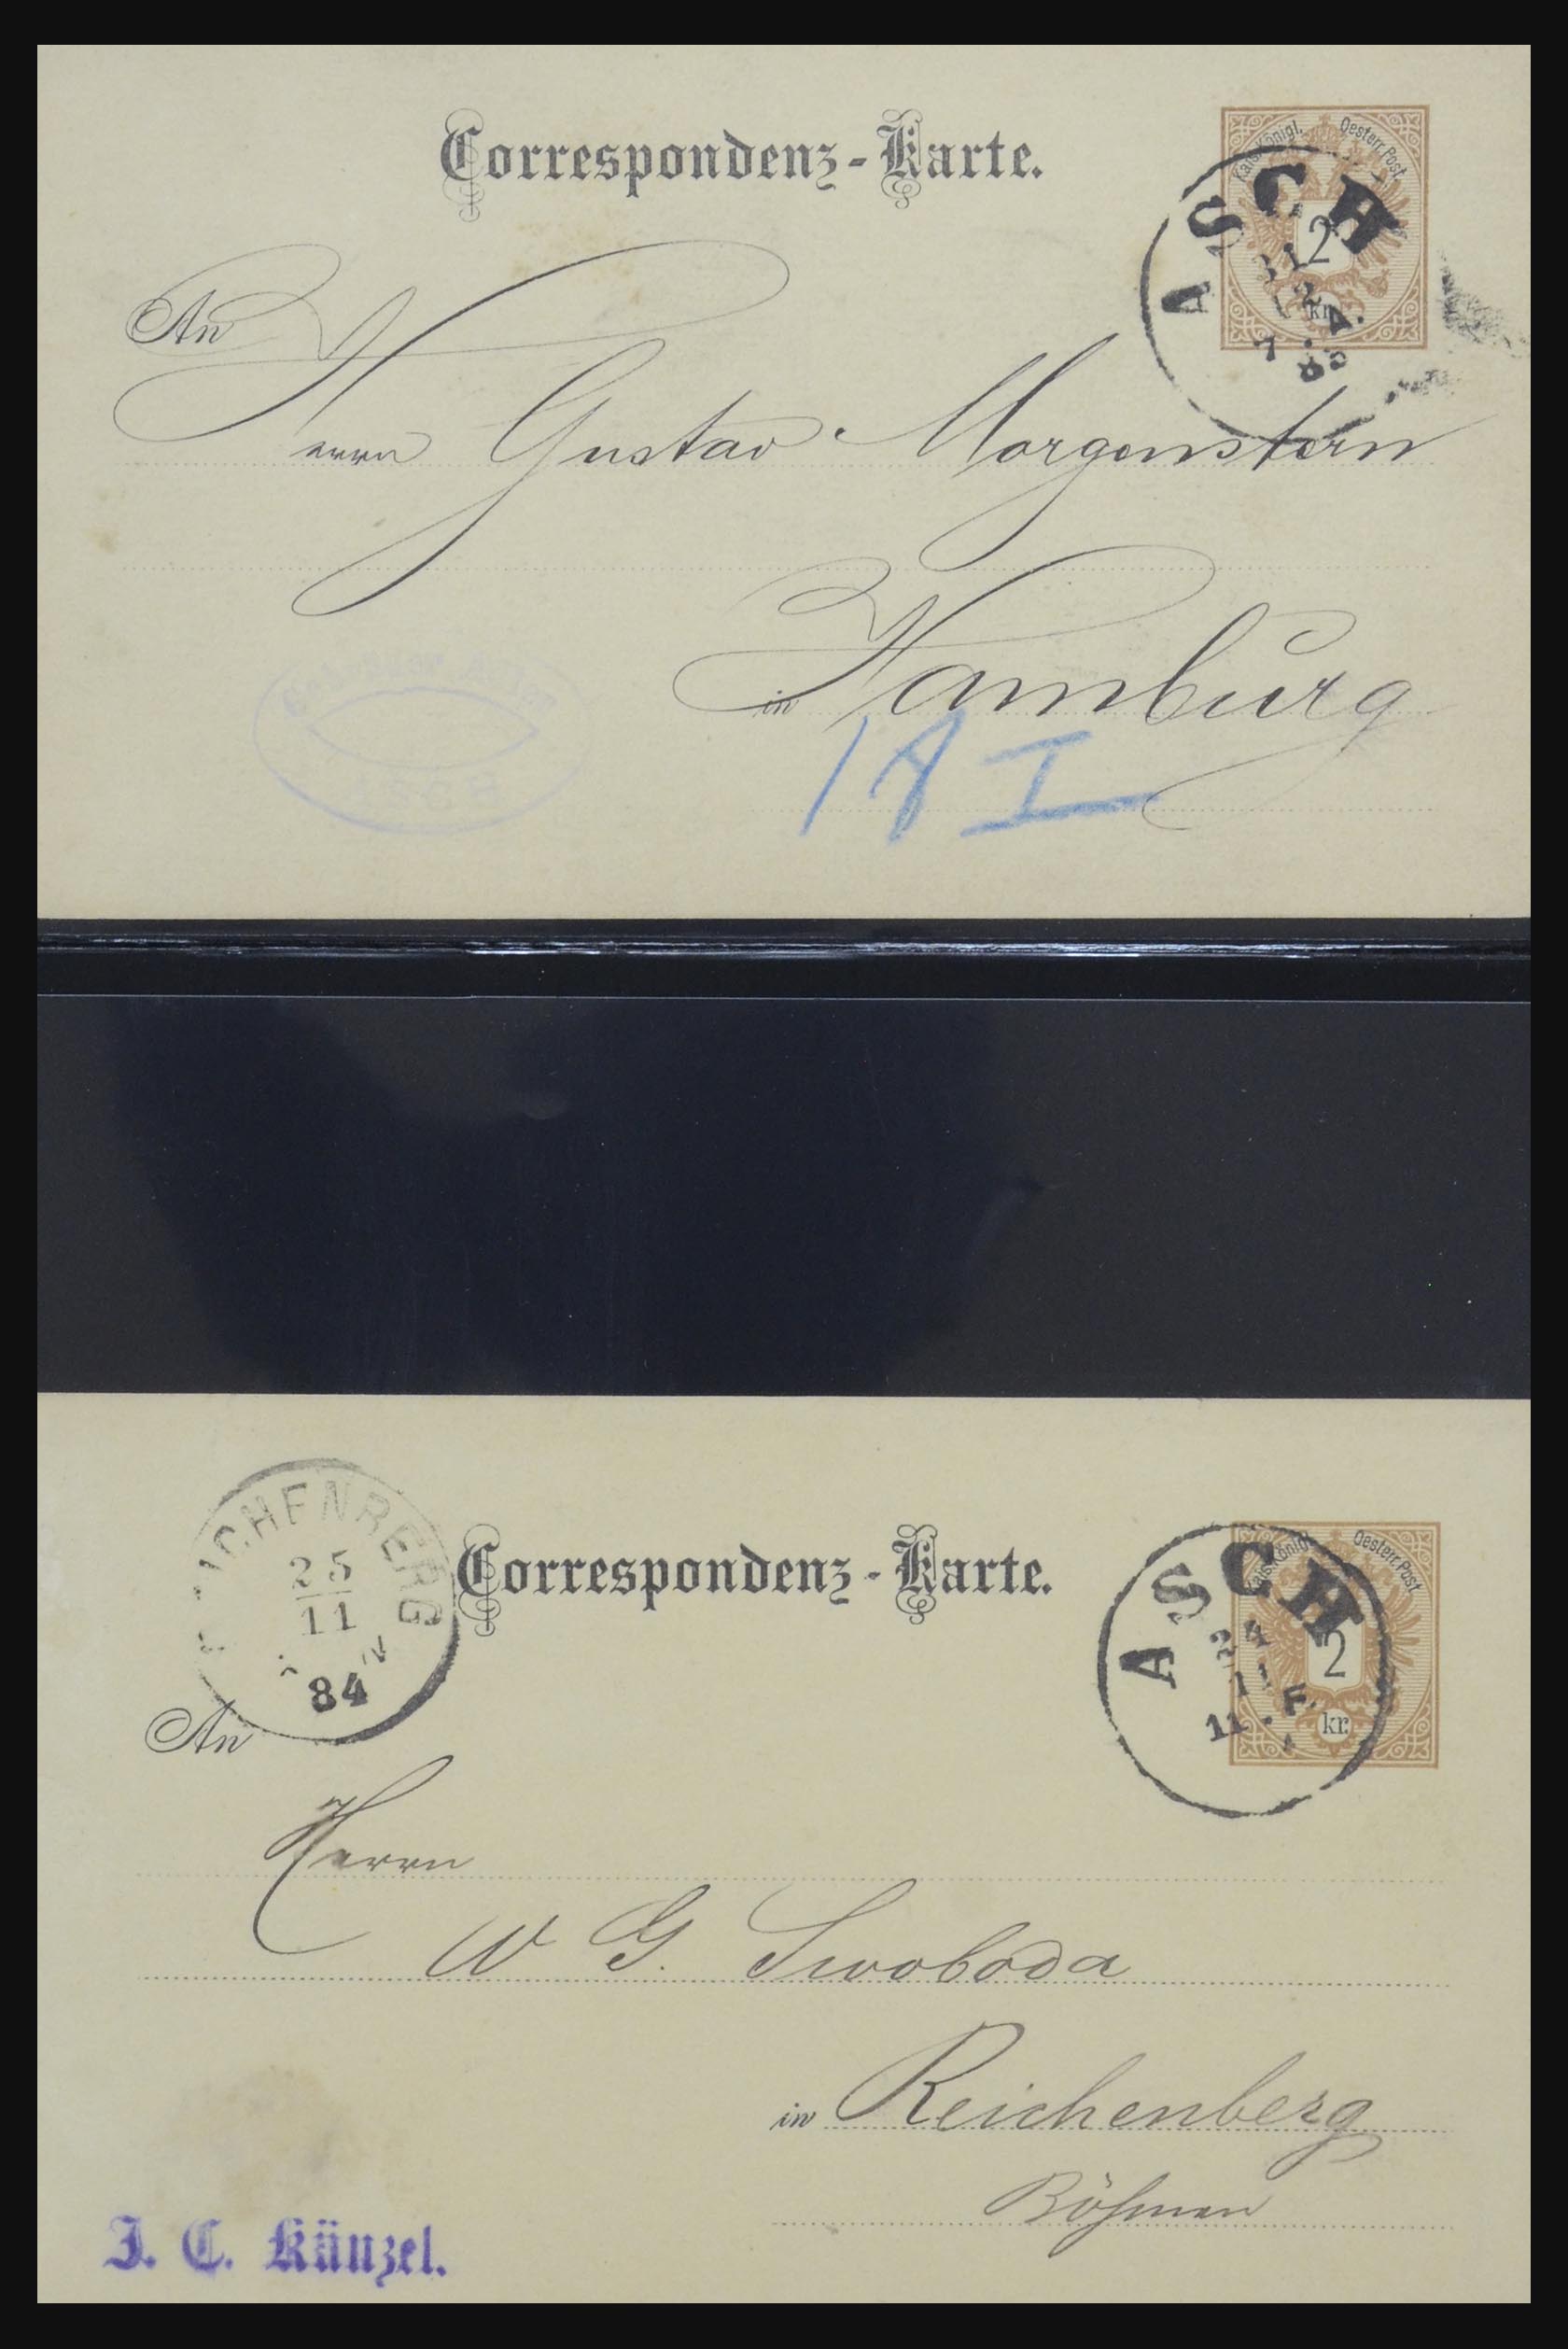 Correspondenz-Karte.
Kais. Königl. Oesterr. Post
2
kr.
ASCH
An
Herrn Gustav Morgenstern
in Hamburg
18 I
REICHENBERG
25
11
84
Correspondenz-Karte.
Kais. Königl. Oesterr. Post
2
kr.
ASCH
24
11 F.
An
Herrn
W G. Swoboda
in Reichenberg
Böhmen
J. C. Künzel.